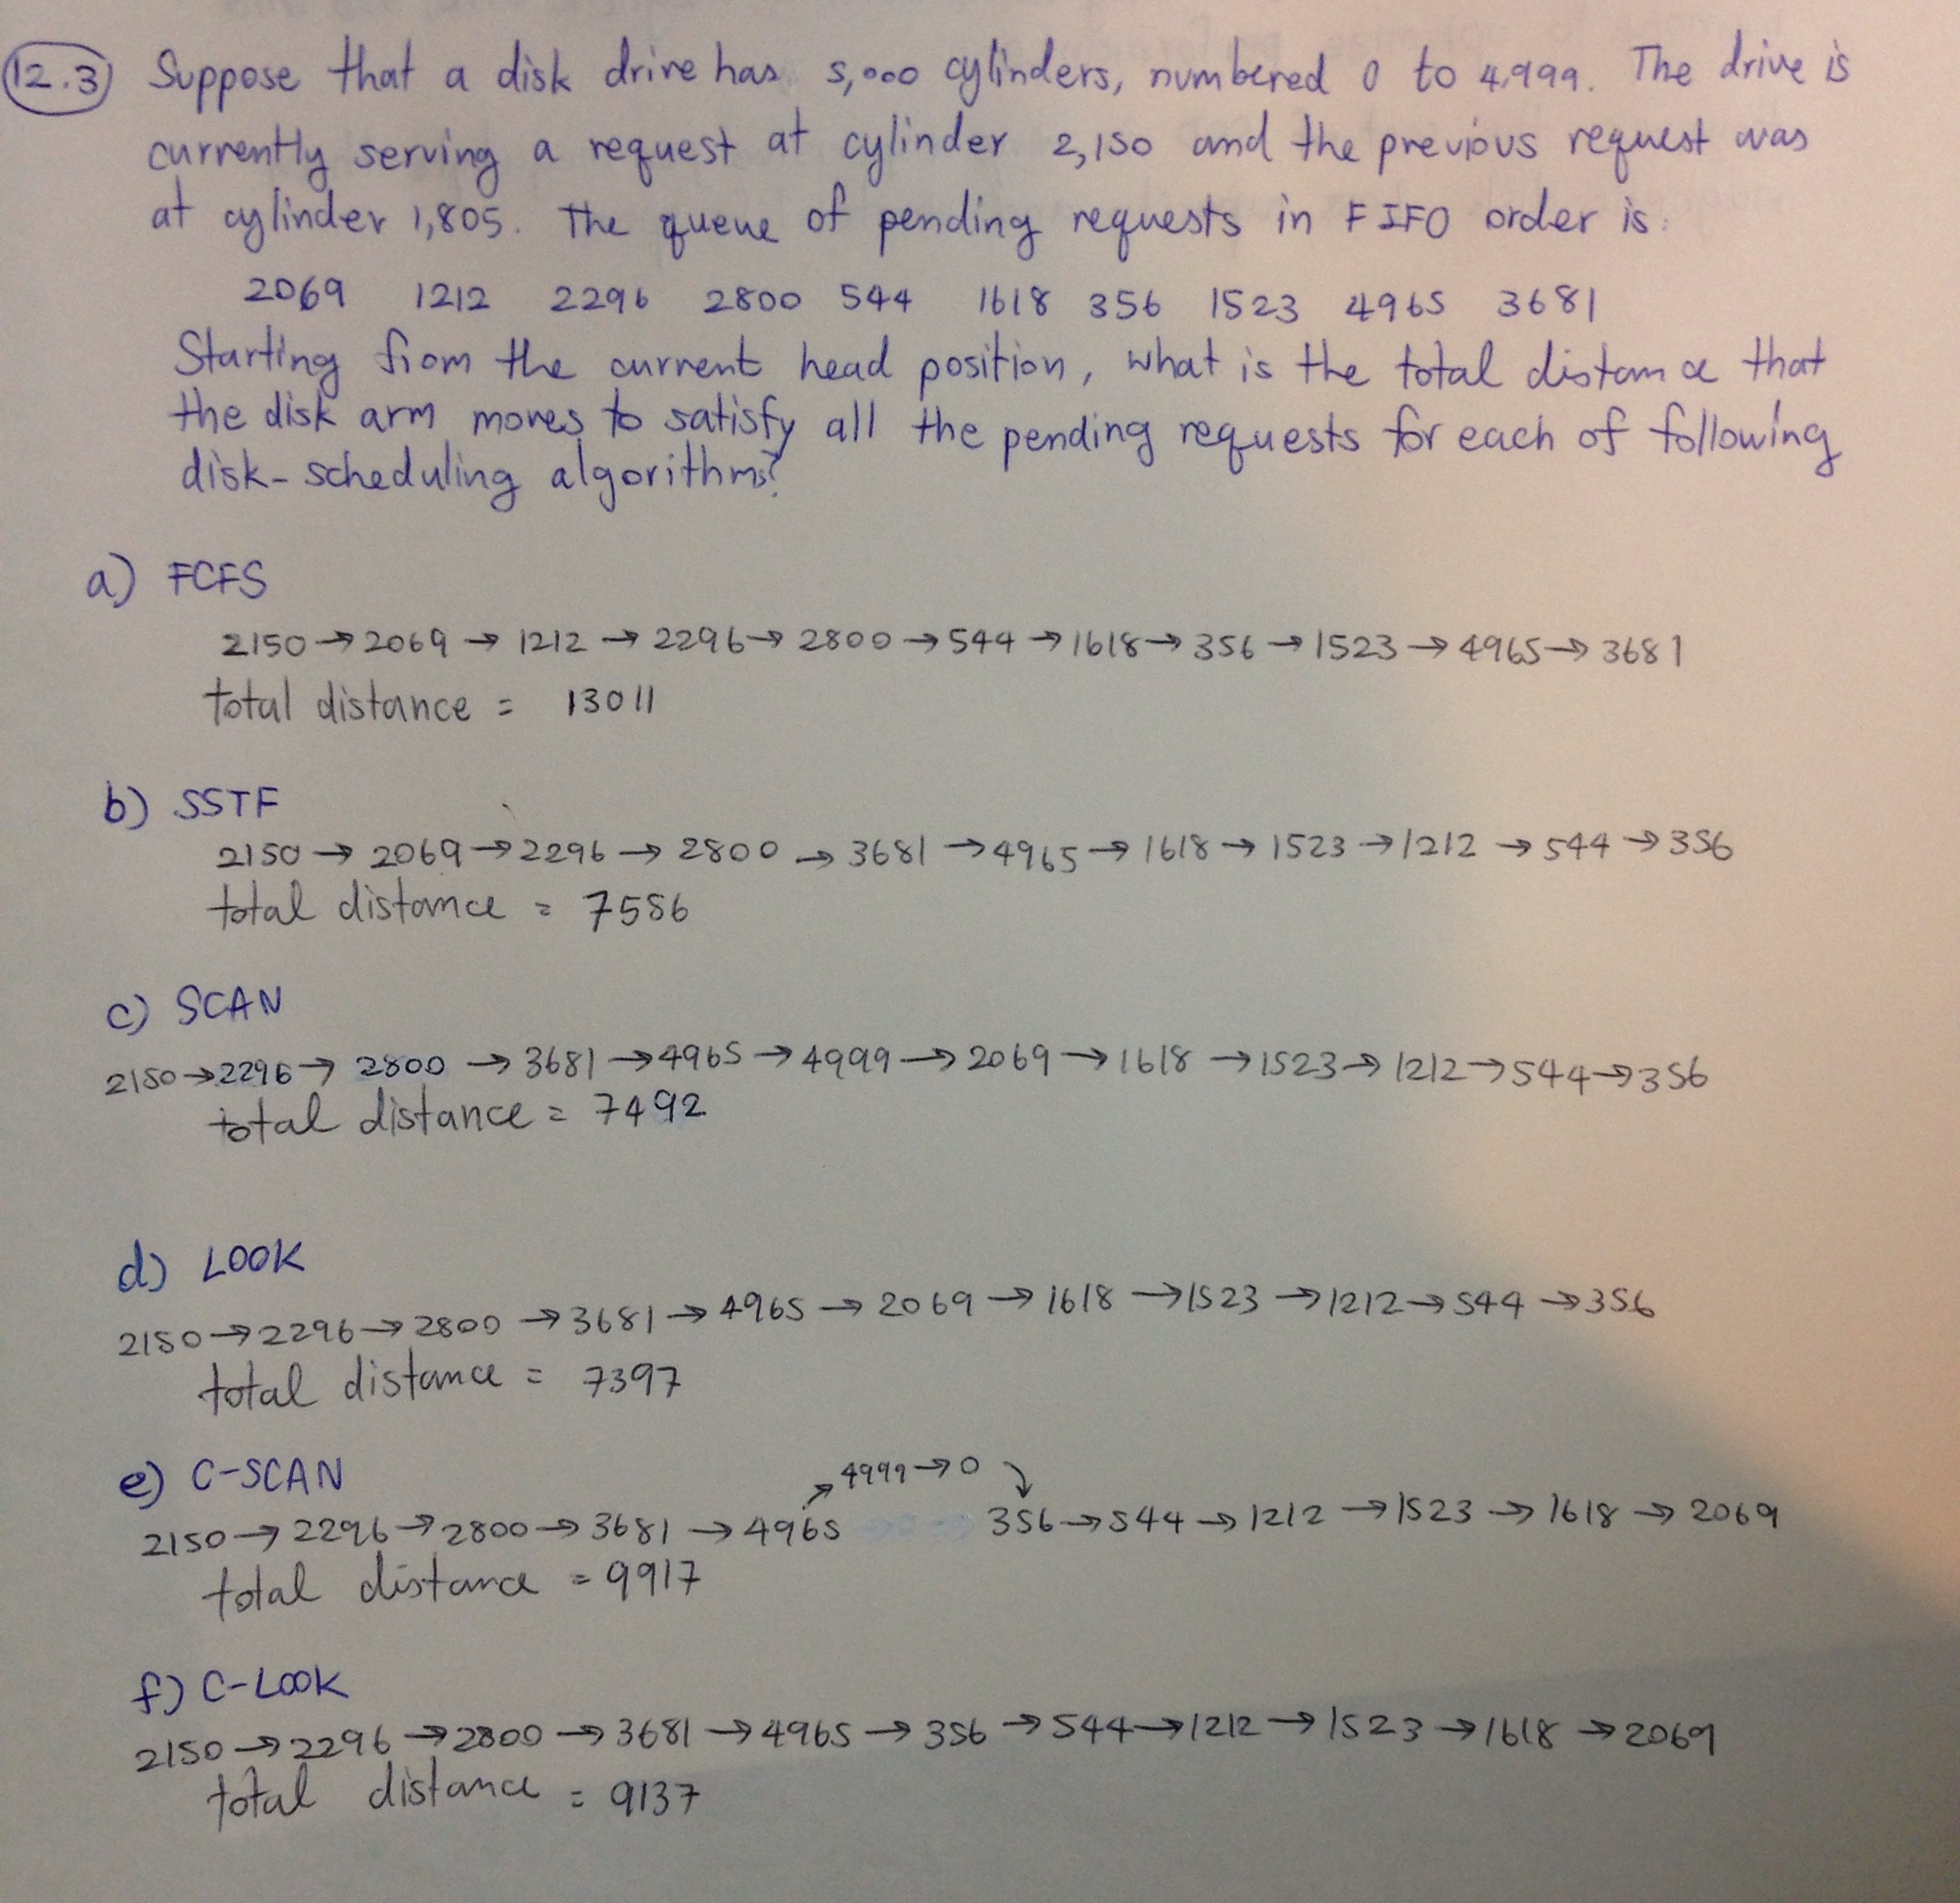 12.3 Suppose that a disk drive has 5,000 cylinders, numbered 0 to 4,999. The drive is
currently serving a request at cylinder 2,150 and the previous request was
at cylinder 1,805. The queue of pending requests in FIFO order is:
2069 1212 2296 2800 544 1618 356 1523 4965 3681
Starting from the current head position, what is the total distance that
the disk arm moves to satisfy all the pending requests for each of following
disk-scheduling algorithms?
a) FCFS
2150 → 2069 → 1212 → 2296 → 2800 → 544 → 1618 → 356 → 1523 → 4965 → 3681
total distance = 13011
b) SSTF
2150 → 2069 → 2296 → 2800 → 3681 → 4965 → 1618 → 1523 → 1212 → 544 → 356
total distance = 7586
c) SCAN
2150 → 2296 → 2800 → 3681 → 4965 → 4999 → 2069 → 1618 → 1523 → 1212 → 544 → 356
total distance = 7492
d) LOOK
2150 → 2296 → 2800 → 3681 → 4965 → 2069 → 1618 → 1523 → 1212 → 544 → 356
total distance = 7397
e) C-SCAN
↗ 4999 → 0 ↘
2150 → 2296 → 2800 → 3681 → 4965 356 → 544 → 1212 → 1523 → 1618 → 2069
total distance = 9917
f) C-LOOK
2150 → 2296 → 2800 → 3681 → 4965 → 356 → 544 → 1212 → 1523 → 1618 → 2069
total distance = 9137